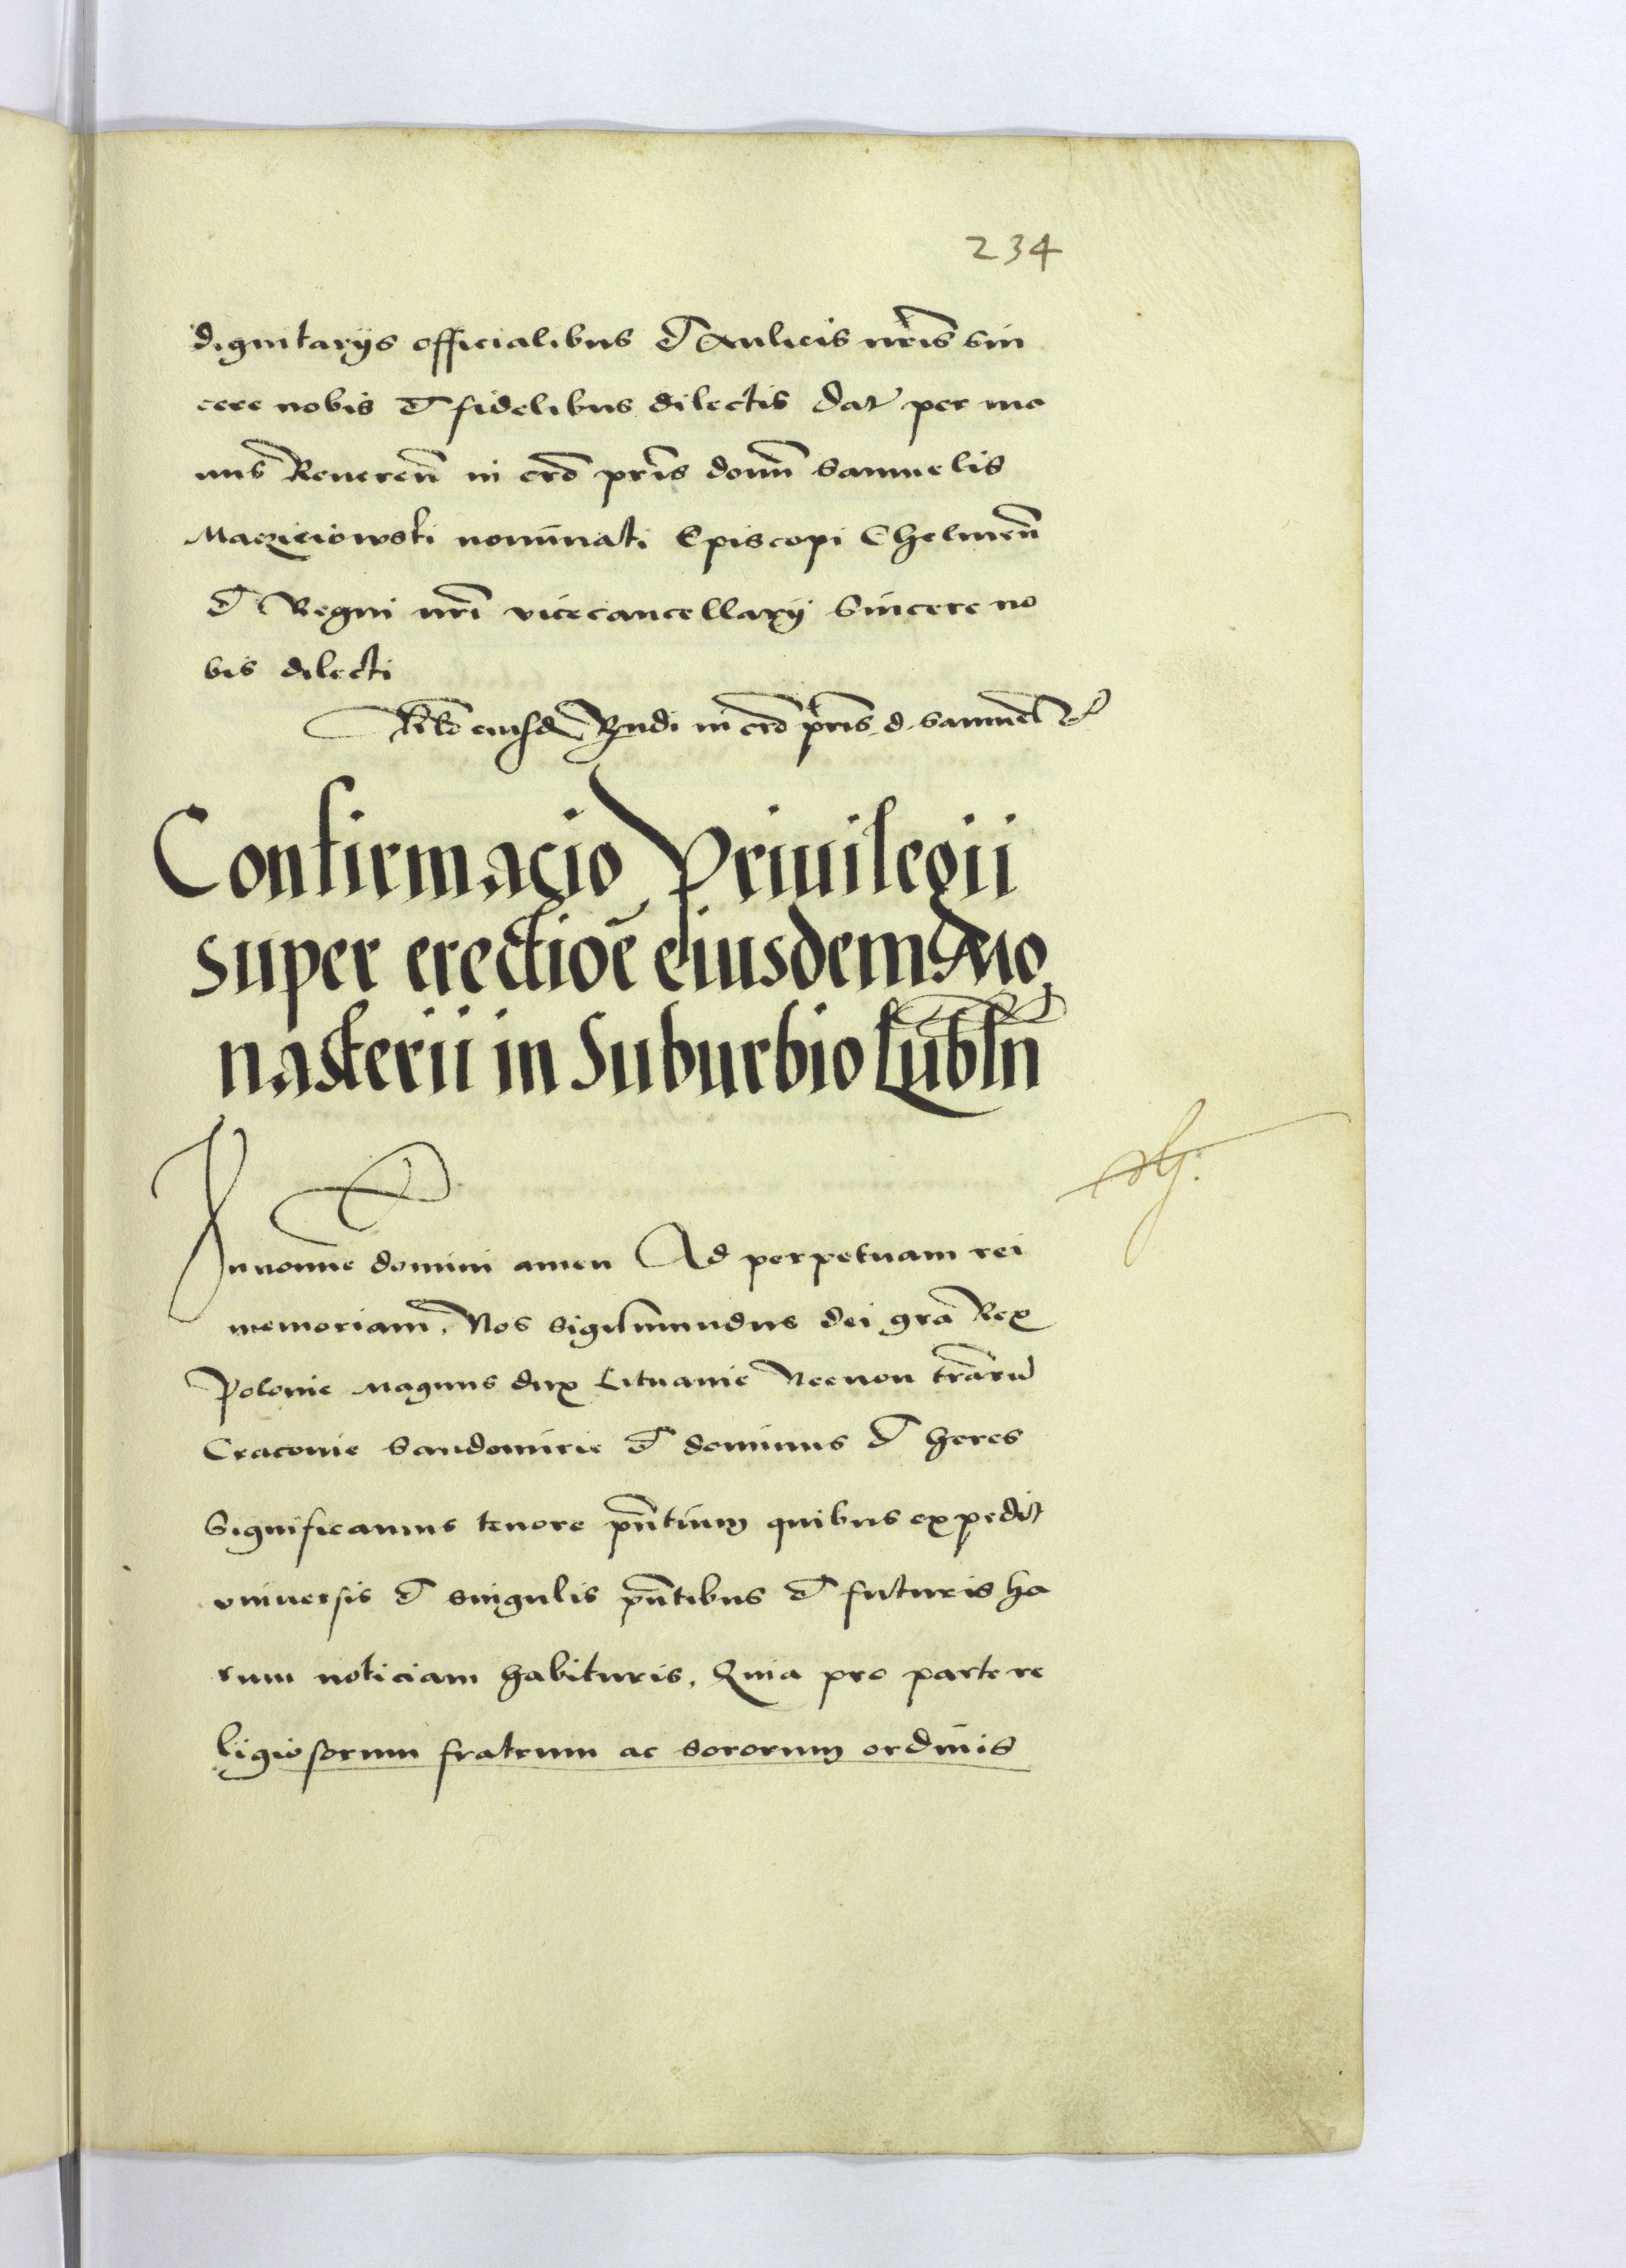 234
dignitarijs officialibus et Aulicis nris̃ sin
cere nobis et fidelibus dilectis Dat̃ per ma
nus Reveren̄ in cr̃o pr̃is domñ Samuelis
Macziciowski nominati Episcopi Chelmeñ
et Regni nr̃i vicecancellarij Sincere no
bis dilecti
eiusd Rndi in cr̃o pr̃is d. Samuel
Confirmacio Priuilegii
super erectioẽ eiusdem Mo
nasterii in Suburbio Lublñ
In nomine domini amen Ad perpetuam rei
memoriam. Nos Sigismundus dei grã Rex
Polonie Magnus dux Lituanie Necnon trãru
Craconie Sandomirie et dominus et heres
Significamus tenore pñtium quibus expedit
vniuersis et singulis pñtibus et futuris ha
rum noticiam habituris. Quia pro parte re
ligiosorum fratrum ac sororum ordinis